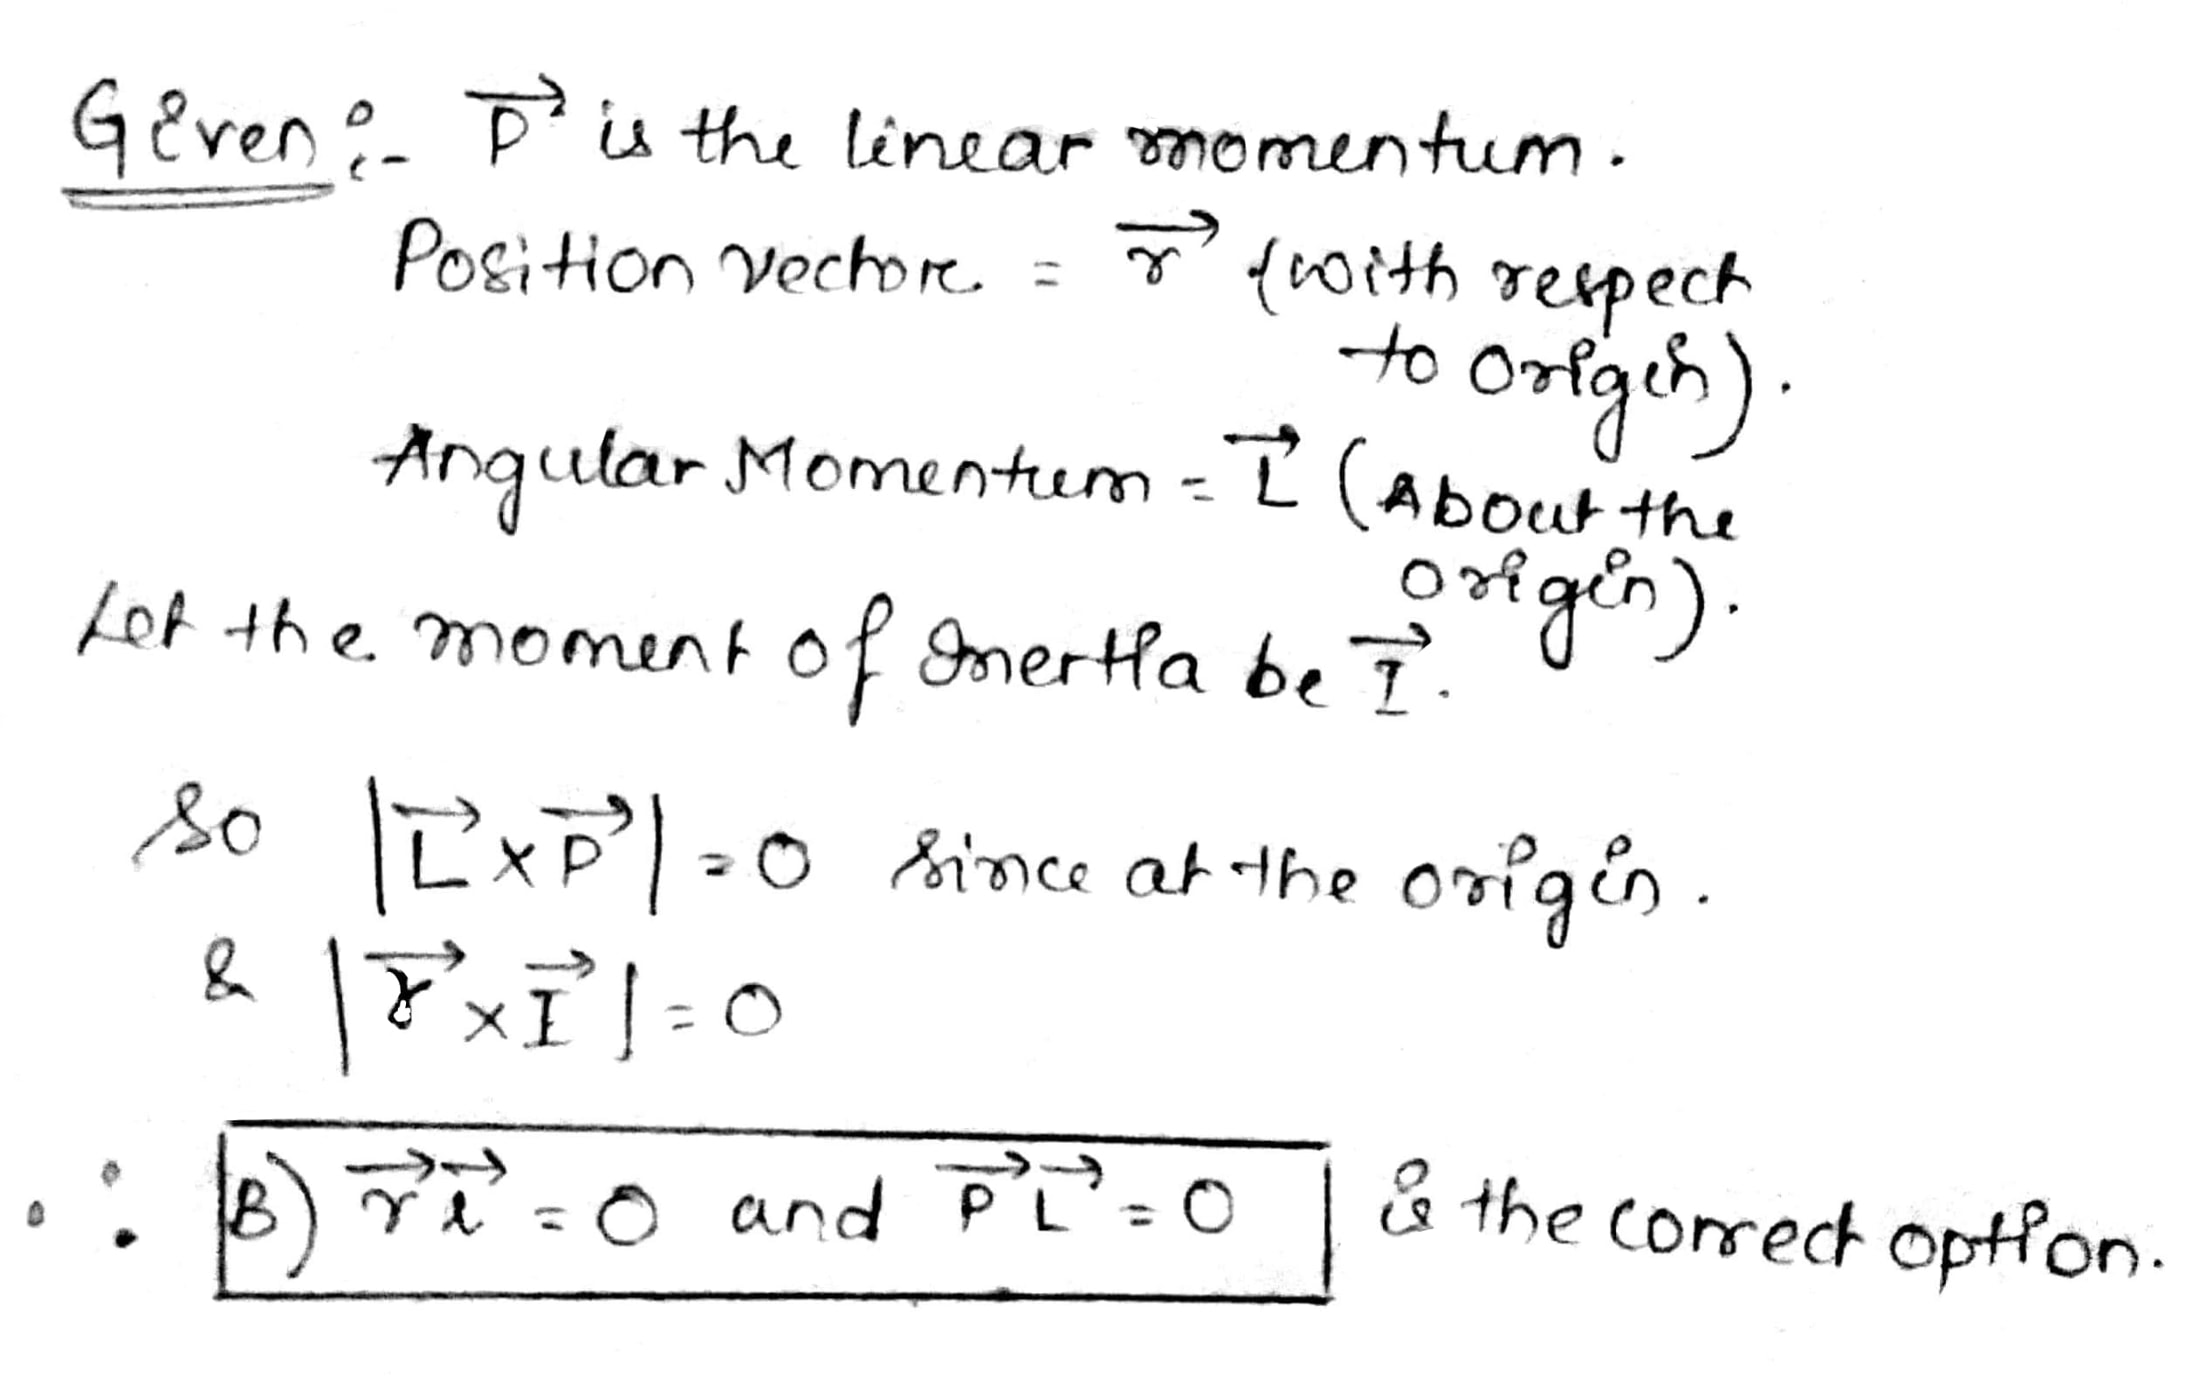 Given :- P⃗ is the linear momentum.
Position vector = r⃗ (with respect
to origin).
Angular Momentum = L⃗ (About the
origin).
Let the moment of Inertia be I⃗.
So |L⃗ × P⃗| = 0 since at the origin.
& |r⃗ × I⃗| = 0
∴ B) r⃗ l⃗ = 0 and P⃗ L⃗ = 0 is the correct option.